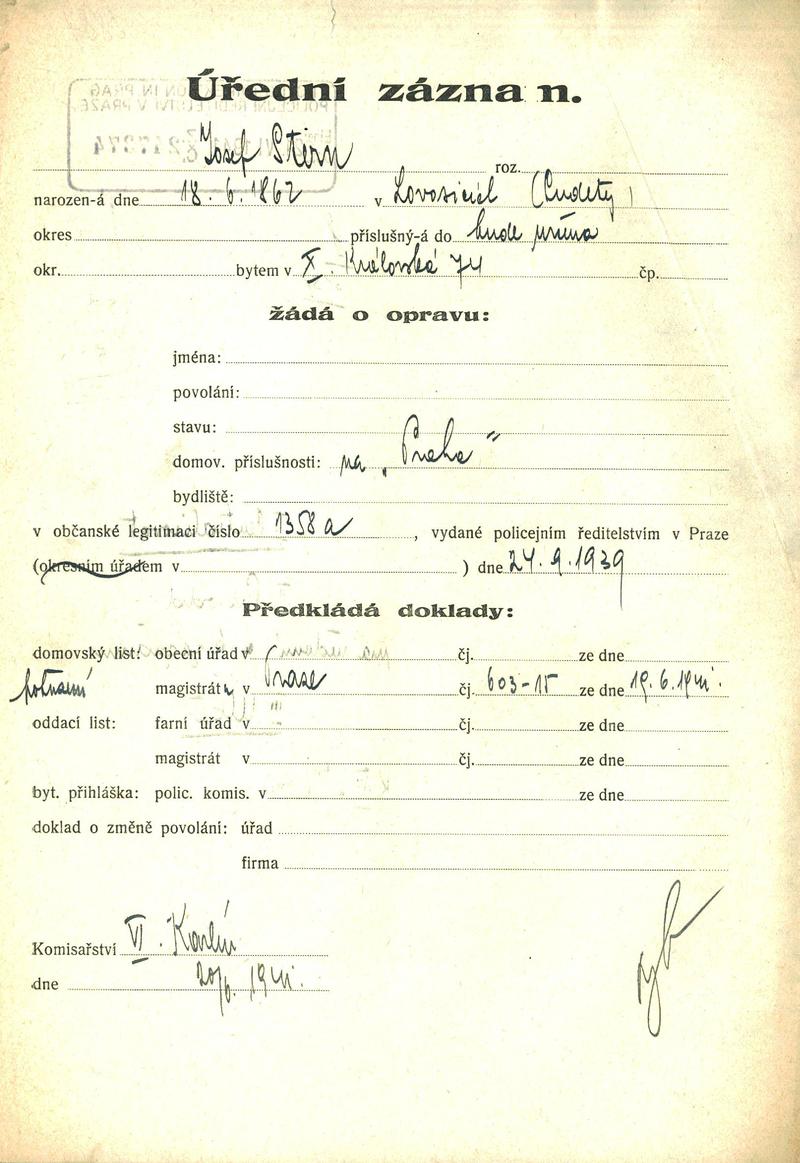 Úřední záznam.
Josef Stirn roz.
narozen-á dne 18. 6. 1862 v Lovosicích (Sudety)
okres příslušný-á do bude
okr. bytem v X. Královská 74 čp.
žádá o opravu:
jména:
povolání:
stavu:
domov. příslušnosti: na „Praha"
bydliště:
v občanské legitimaci číslo 1358a, vydané policejním ředitelstvím v Praze
(okresním úřadem v ) dne 24. 9. 1939
Předkládá doklady:
domovský list: obecní úřad v čj. ze dne
potvrzení magistrátu v Praze čj. 603-15 ze dne 19. 6. 1941.
oddací list: farní úřad v čj. ze dne
magistrát v čj. ze dne
byt. přihláška: polic. komis. v ze dne
doklad o změně povolání: úřad
firma
Komisařství VI. Karlín
dne 20/6. 1941.